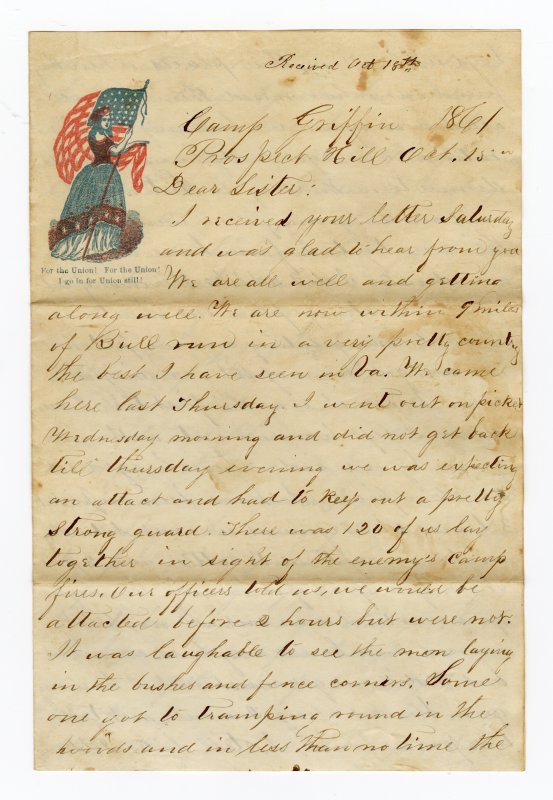 Received Oct 18th
Camp Griffin 1861
Prospect Hill Oct. 15
Dear Sister:
I received your letter Saturday
and was glad to hear from you
For the Union! For the Union!
I go in for Union still!
We are all well and getting
along well. We are now within 9 miles
of Bull run in a very pretty country
the best I have seen in Va. We came
here last Thursday. I went out on picket
Wednesday morning and did not get back
till thursday evening we was expecting
an attact and had to keep out a pretty
strong guard. There was 120 of us lay
together in sight of the enemy's camp
fires. Our officers told us, we would be
attacted before 2 hours but were not.
It was laughable to see the men laying
in the bushes and fence corners. Some
one got to tramping round in the
woods and in less than no time the